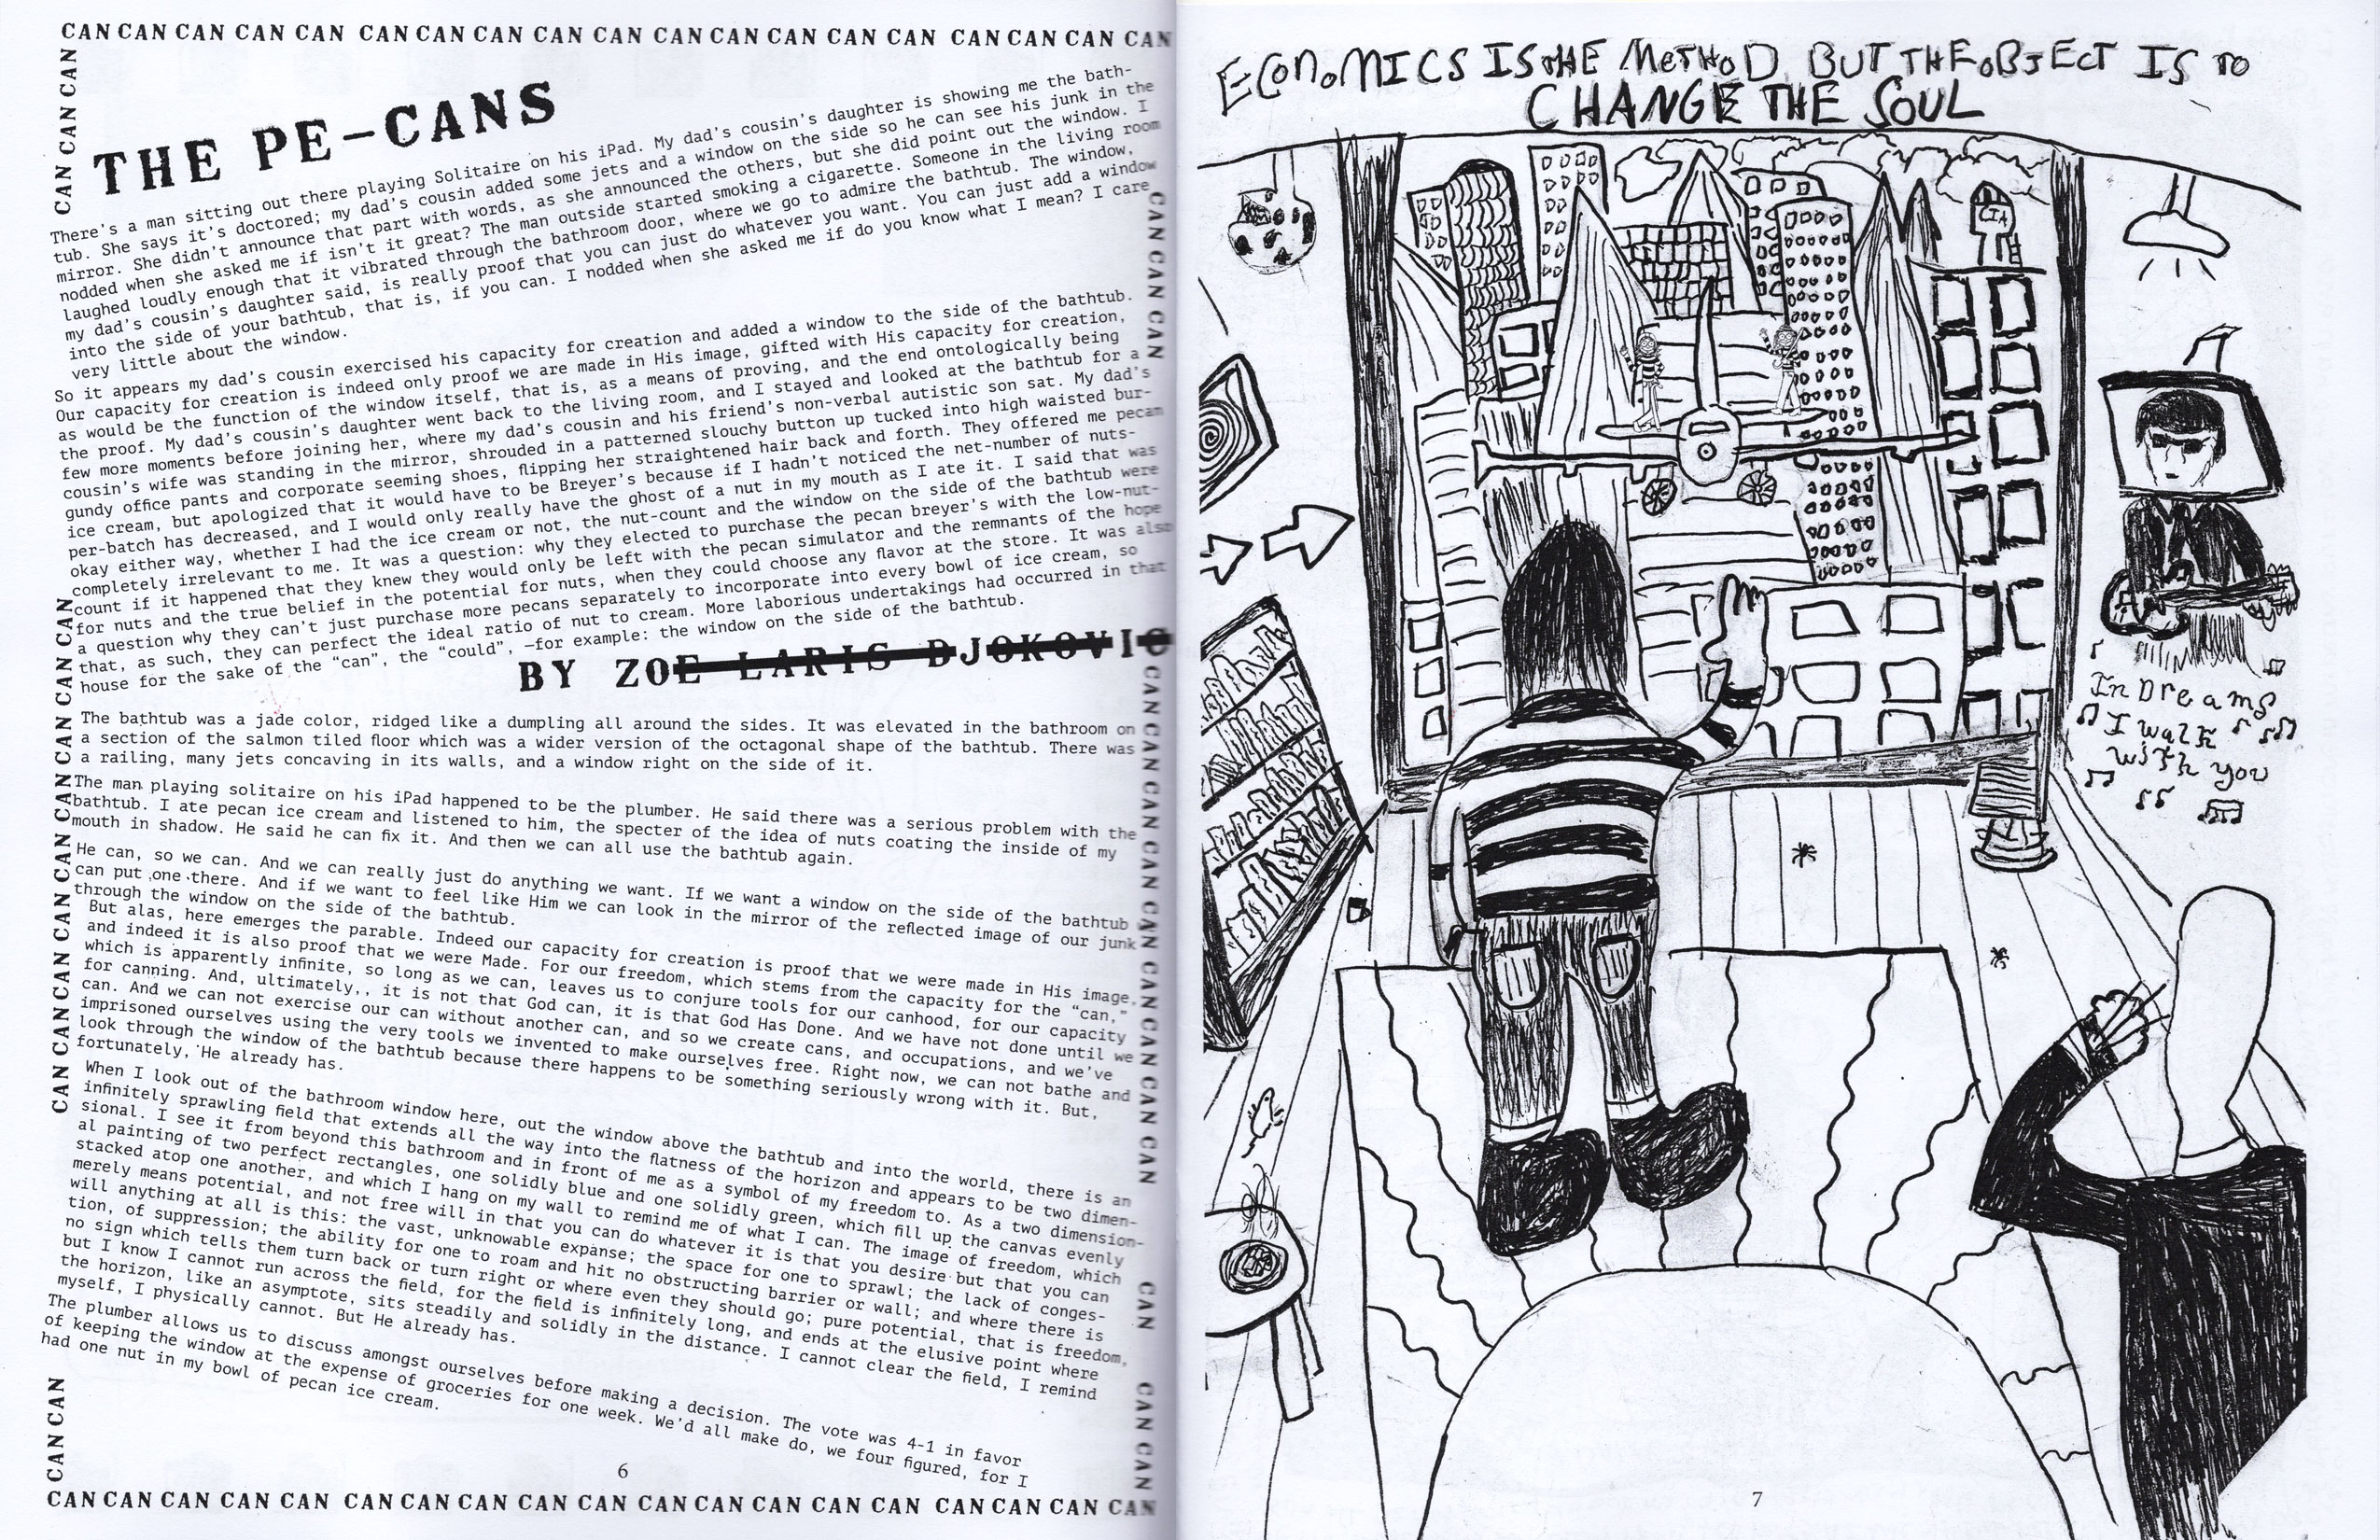 CAN CAN CAN CAN CAN CAN CAN CAN CAN CAN CAN CAN CAN CAN CAN CAN CAN CAN CAN
CAN CAN CAN
THE PE-CANS
There's a man sitting out there playing Solitaire on his iPad. My dad's cousin's daughter is showing me the bath-
tub. She says it's doctored; my dad's cousin added some jets and a window on the side so he can see his junk in the
mirror. She didn't announce that part with words, as she announced the others, but she did point out the window. I
nodded when she asked me if isn't it great? The man outside started smoking a cigarette. Someone in the living room
laughed loudly enough that it vibrated through the bathroom door, where we go to admire the bathtub. The window,
my dad's cousin's daughter said, is really proof that you can just do whatever you want. You can just add a window
into the side of your bathtub, that is, if you can. I nodded when she asked me if do you know what I mean? I care
very little about the window.
CAN CAN CAN
So it appears my dad's cousin exercised his capacity for creation and added a window to the side of the bathtub.
Our capacity for creation is indeed only proof we are made in His image, gifted with His capacity for creation,
as would be the function of the window itself, that is, as a means of proving, and the end ontologically being
the proof. My dad's cousin's daughter went back to the living room, and I stayed and looked at the bathtub for a
few more moments before joining her, where my dad's cousin and his friend's non-verbal autistic son sat. My dad's
cousin's wife was standing in the mirror, shrouded in a patterned slouchy button up tucked into high waisted bur-
gundy office pants and corporate seeming shoes, flipping her straightened hair back and forth. They offered me pecan
ice cream, but apologized that it would have to be Breyer's because if I hadn't noticed the net-number of nuts-
per-batch has decreased, and I would only really have the ghost of a nut in my mouth as I ate it. I said that was
okay either way, whether I had the ice cream or not, the nut-count and the window on the side of the bathtub were
completely irrelevant to me. It was a question: why they elected to purchase the pecan breyer's with the low-nut-
count if it happened that they knew they would only be left with the pecan simulator and the remnants of the hope
for nuts and the true belief in the potential for nuts, when they could choose any flavor at the store. It was also
a question why they can't just purchase more pecans separately to incorporate into every bowl of ice cream, so
that, as such, they can perfect the ideal ratio of nut to cream. More laborious undertakings had occurred in that
house for the sake of the "can", the "could", —for example: the window on the side of the bathtub.
BY ZOE LARIS DJOKOVIC
CAN CAN CAN CAN CAN CAN CAN CAN CAN
The bathtub was a jade color, ridged like a dumpling all around the sides. It was elevated in the bathroom on
a section of the salmon tiled floor which was a wider version of the octagonal shape of the bathtub. There was
a railing, many jets concaving in its walls, and a window right on the side of it.
The man playing solitaire on his iPad happened to be the plumber. He said there was a serious problem with the
bathtub. I ate pecan ice cream and listened to him, the specter of the idea of nuts coating the inside of my
mouth in shadow. He said he can fix it. And then we can all use the bathtub again.
He can, so we can. And we can really just do anything we want. If we want a window on the side of the bathtub
can put one there. And if we want to feel like Him we can look in the mirror of the reflected image of our junk
through the window on the side of the bathtub.
But alas, here emerges the parable. Indeed our capacity for creation is proof that we were made in His image,
and indeed it is also proof that we were Made. For our freedom, which stems from the capacity for the "can,"
which is apparently infinite, so long as we can, leaves us to conjure tools for our canhood, for our capacity
for canning. And, ultimately,, it is not that God can, it is that God Has Done. And we have not done until we
can. And we can not exercise our can without another can, and so we create cans, and occupations, and we've
imprisoned ourselves using the very tools we invented to make ourselves free. Right now, we can not bathe and
look through the window of the bathtub because there happens to be something seriously wrong with it. But,
fortunately, He already has.
When I look out of the bathroom window here, out the window above the bathtub and into the world, there is an
infinitely sprawling field that extends all the way into the flatness of the horizon and appears to be two dimen-
sional. I see it from beyond this bathroom and in front of me as a symbol of my freedom to. As a two dimension-
al painting of two perfect rectangles, one solidly blue and one solidly green, which fill up the canvas evenly
stacked atop one another, and which I hang on my wall to remind me of what I can. The image of freedom, which
merely means potential, and not free will in that you can do whatever it is that you desire but that you can
will anything at all is this: the vast, unknowable expanse; the space for one to sprawl; the lack of conges-
tion, of suppression; the ability for one to roam and hit no obstructing barrier or wall; and where there is
no sign which tells them turn back or turn right or where even they should go; pure potential, that is freedom,
but I know I cannot run across the field, for the field is infinitely long, and ends at the elusive point where
the horizon, like an asymptote, sits steadily and solidly in the distance. I cannot clear the field, I remind
myself, I physically cannot. But He already has.
The plumber allows us to discuss amongst ourselves before making a decision. The vote was 4-1 in favor
of keeping the window at the expense of groceries for one week. We'd all make do, we four figured, for I
had one nut in my bowl of pecan ice cream.
CAN CAN CAN CAN CAN CAN CAN CAN CAN
CAN
CAN CAN
CAN CAN
6
CAN CAN CAN CAN CAN CAN CAN CAN CAN CAN CAN CAN CAN CAN CAN CAN CAN CAN CAN
ECONOMICS IS THE METHOD BUT THE OBJECT IS TO
CHANGE THE SOUL
CIA
In Dreams
I walk
with you
7